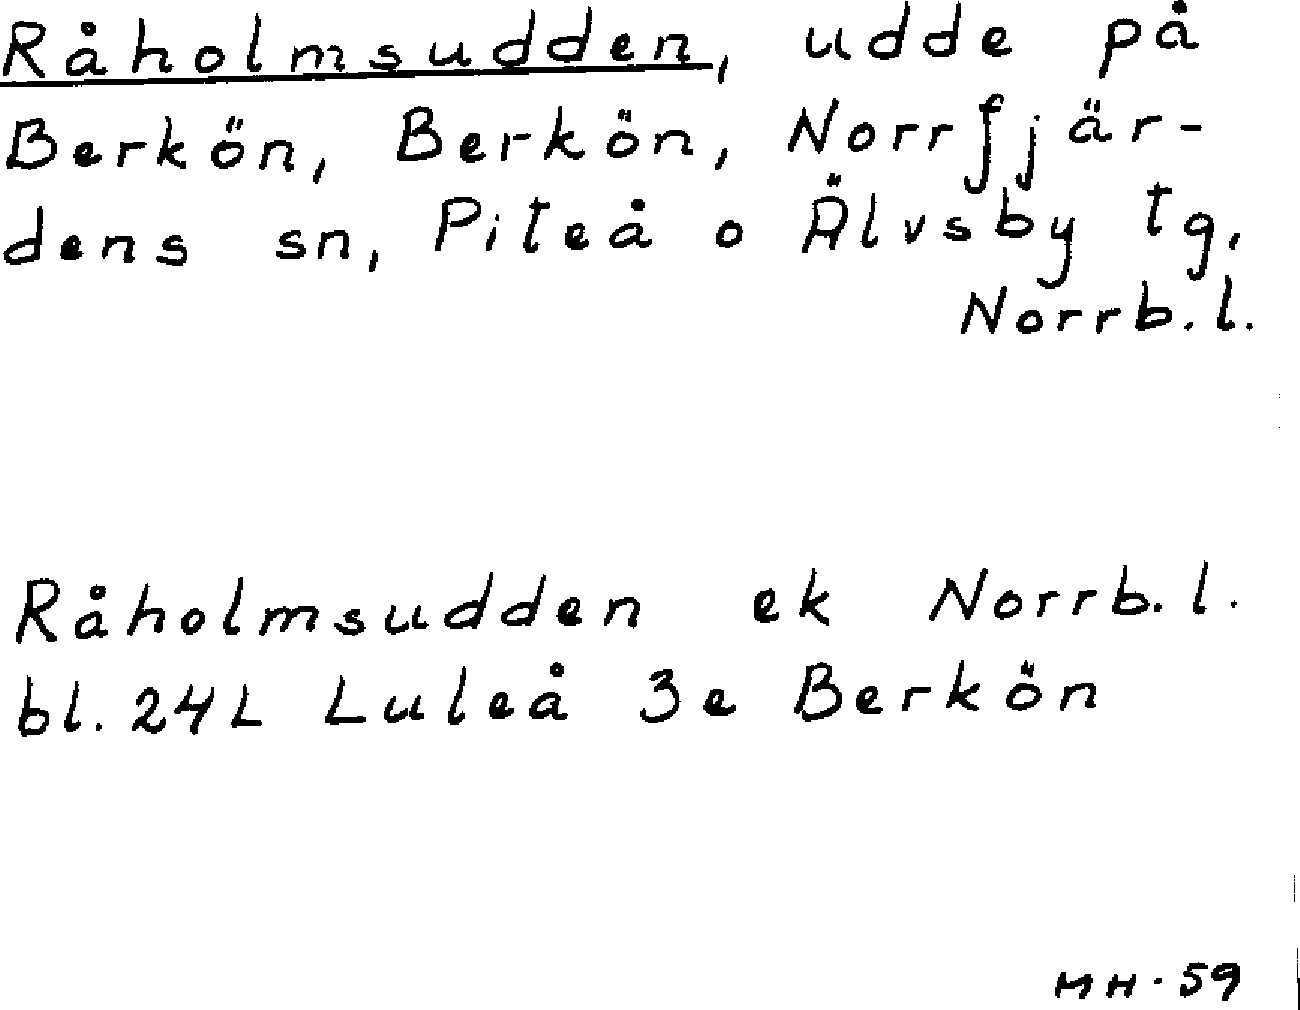 Råholmsudden, udde på
Berkön, Berkön, Norrfjär-
dens sn, Piteå o Älvsby tg,
Norrb.l.
Råholmsudden ek Norrb.l.
bl. 24L Luleå 3e Berkön
MH-59